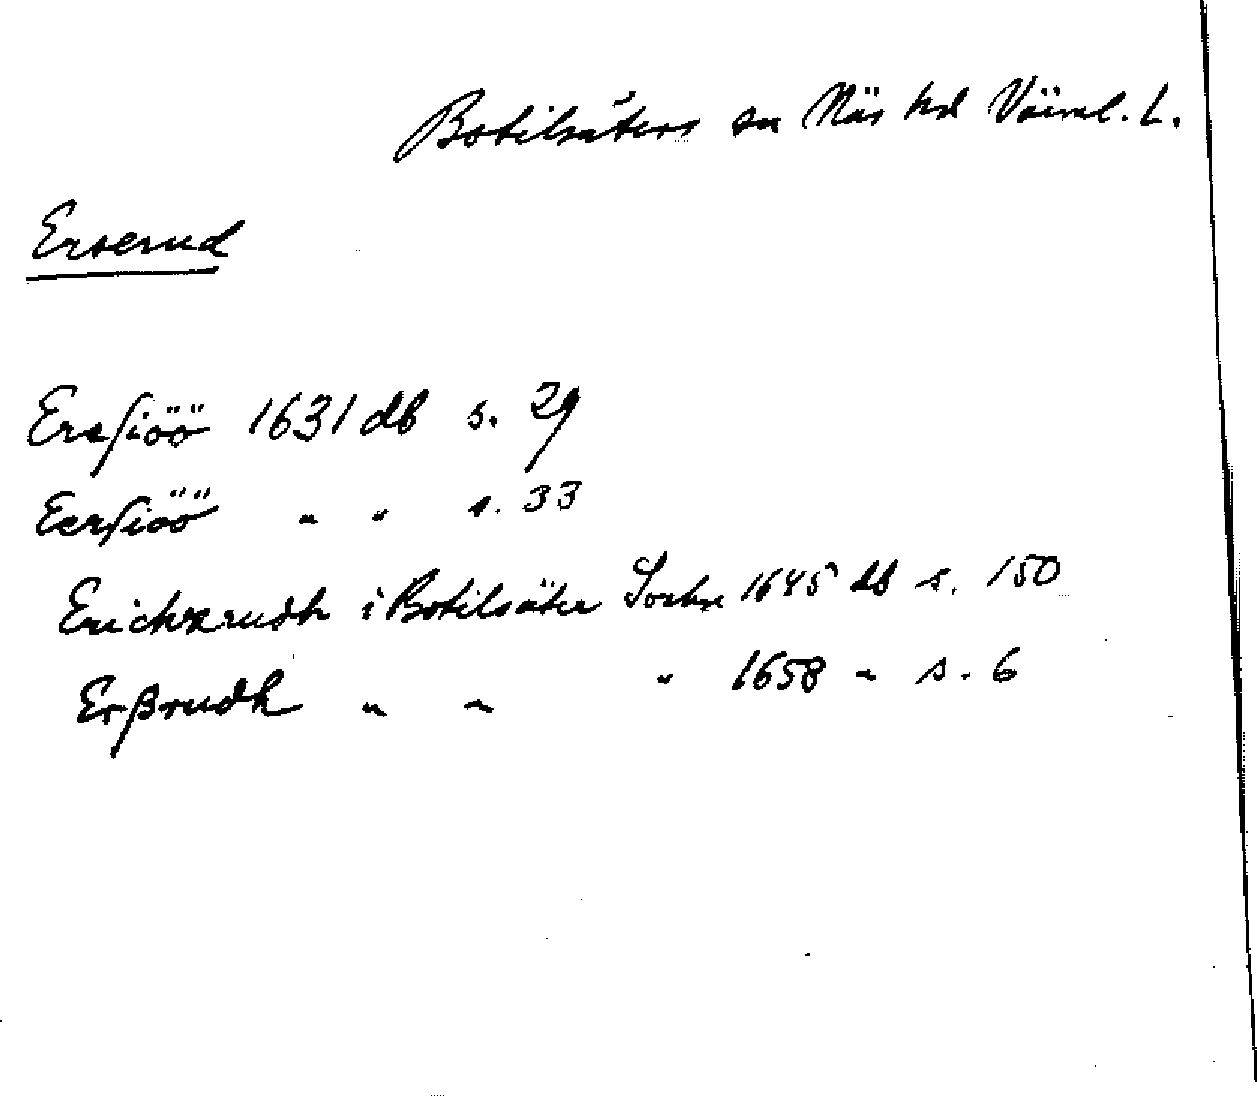 Botilsäters sn Näs hd Värml. L.
Erserud
Ersſiöö 1631 db s. 29
Eerſiöö " " s. 33
Erichzrudh i Botilsäter Sochn 1645 db s. 150
Erßrudh " " " 1658 " s. 6